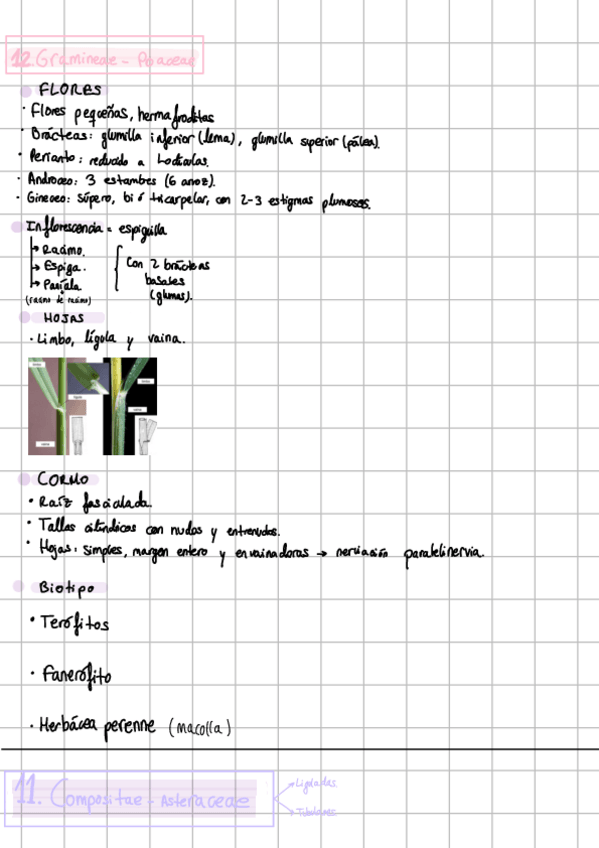 12. Gramineae - Poaceae
FLORES
· Flores pequeñas, hermafroditas
· Brácteas: glumilla inferior (lema), glumilla superior (pálea).
· Perianto: reducido a Lodículas.
· Androceo: 3 estambres (6 arroz).
· Gineceo: súpero, bi ó tricarpelar, con 2-3 estigmas plumosos.
Inflorescencia = espiguilla
→ Racimo.
→ Espiga.
→ Panícula
(racimo de racimo)
Con 2 brácteas
basales
(glumas).
HOJAS
· Limbo, lígula y vaina.
limbo
lígula
vaina
limbo
vaina
CORMO
· Raíz fasciculada.
· Tallos cilíndricos con nudos y entrenudos.
· Hojas: simples, margen entero y envainadoras → nerviación paralelinervia.
Biotipo
· Terófitos
· Fanerófito
· Herbácea perenne (macolla)
11. Compositae - Asteraceae
→ Liguladas.
→ Tubulosas.